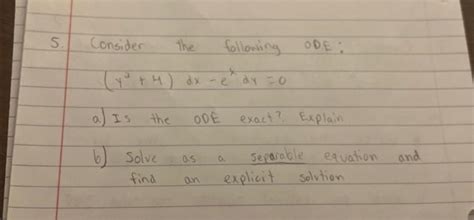 5. Consider the following ODE:
(y² + 4) dx - eˣ dy = 0
a) Is the ODE exact? Explain
b) Solve as a separable equation and
find an explicit solution